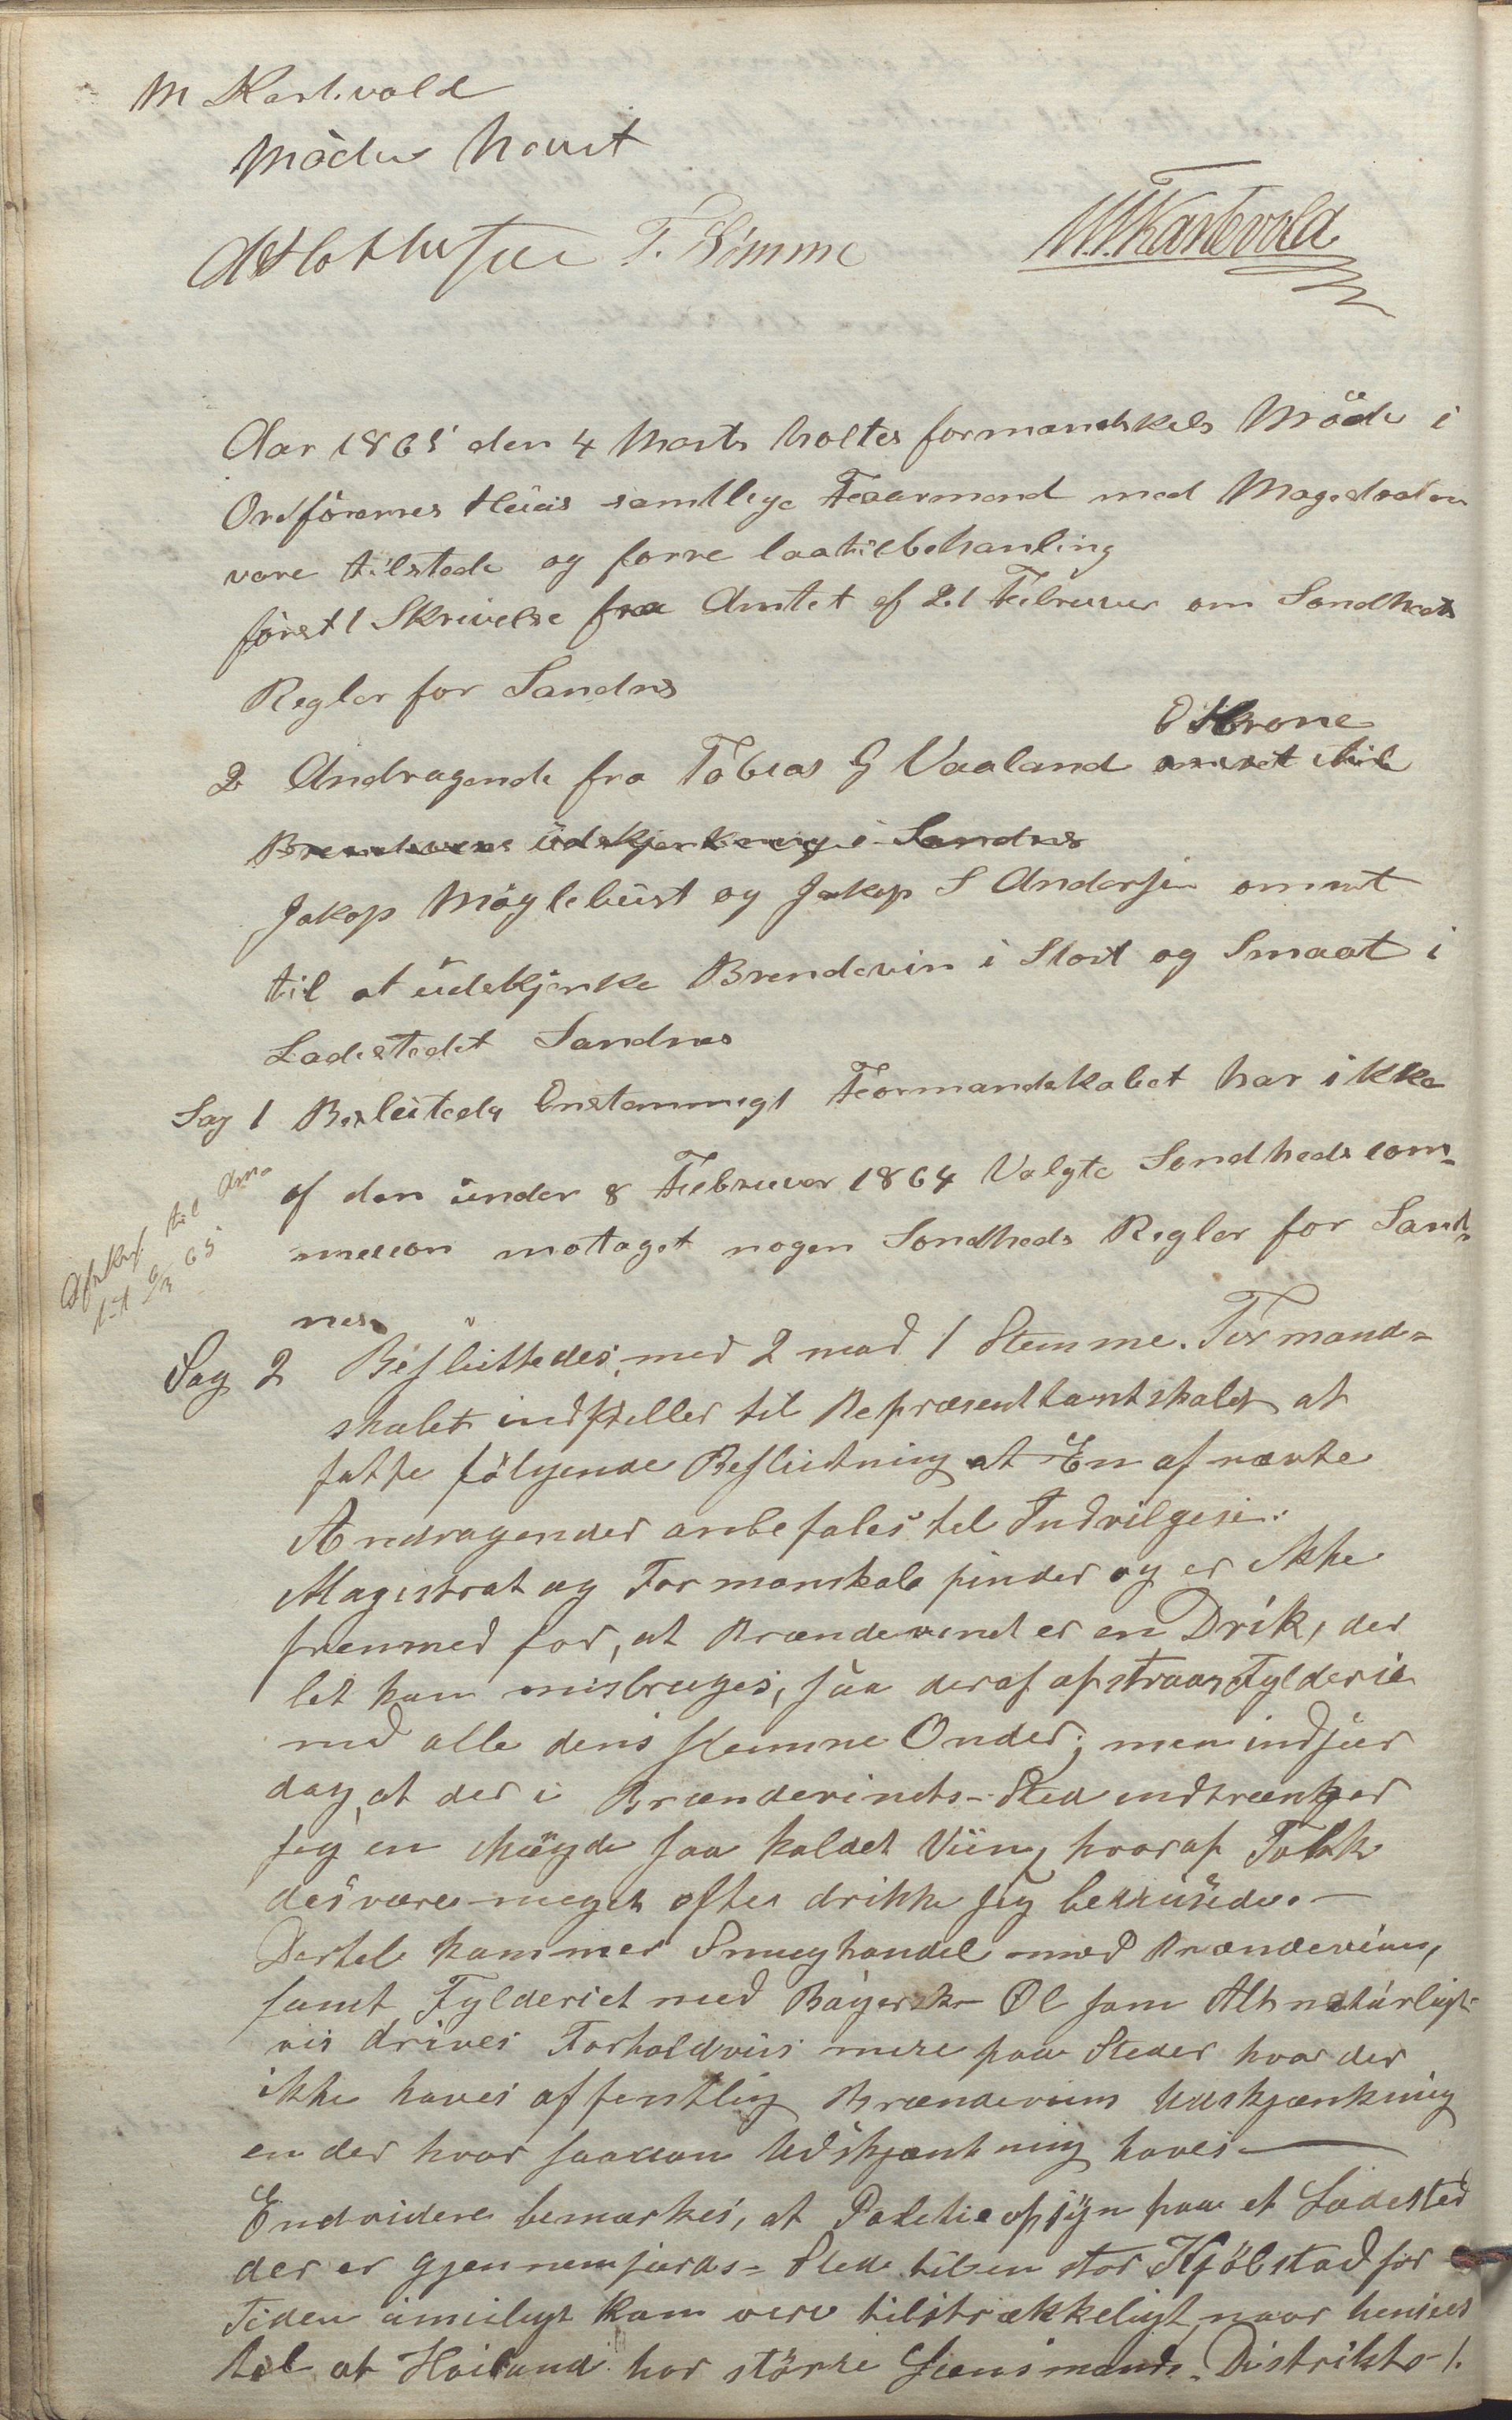 M Kartevold
Möder Houst
T. Simme
M.T. Kartevold
Aar 1865 den 4 Marts holtes formandskabs Möde i
Ordförernes Huus samtlige Formænd med Magistraten
vare tilstede og forre laa til behanling
först 1 Skrivelse fra Amtet af 21 Februar om Sondheds
Regler for Sandnes
O Krone
2 Andragende fra Tobias G Vaaland
Brendevins üdskjenkning i Sandnes
Jakop Möglebust og Jakop S Andersen omret
til at üdskjenke Brendevin i Stort og Smaat i
Ladestedet Sandnes
Sag 1 Besluteds Enstemmigt Formandskabet har ikke
af den ünder 8 Februar 1864 Valgte Sondheds com-
mission mottaget nogen Sondheds Regler for Sand-
nes
til Am
6/3 65
Sag 2 Besluttedes med 2 mod 1 Stemme. Formand-
skabet indstiller til Repræsenttantskabet at
fatte fölgende Beslutning at En af nævte
Andragender anbefales til Indvilgese.
Magistrat og Formanskab finder og er ikke
fremmed for, at Brændevinet er en Drik, der
let kan misbruges, saa deraf afstaar Fylderie
med alle dens slemme Onder; men indseer
dog, at der i Brændevinets Sted indtrænger
sig en Mængde saa kaldet Viin, hvoraf Folk
desvære meget ofte drikke sig berusede. —
Dertil kommer Smughandel med Brændeviin,
samt Fylderiet med Bayersk Øl som Alt naturligt-
vis drives Forholdviis mere paa Steder hvor der
ikke haves offentlig Brændeviins Udskjænkning
en der hvor saadan Udskjænkning haves —
Endvidere bemærkes, at Politieopsÿn paa et Ladested
der er gjennemfærds-Sted til en stor Kjöbstad for
Tiden umuligt kan være tilstrækkeligt, naar hensees
til at Hoiland har störste Lensmands-Distrikt